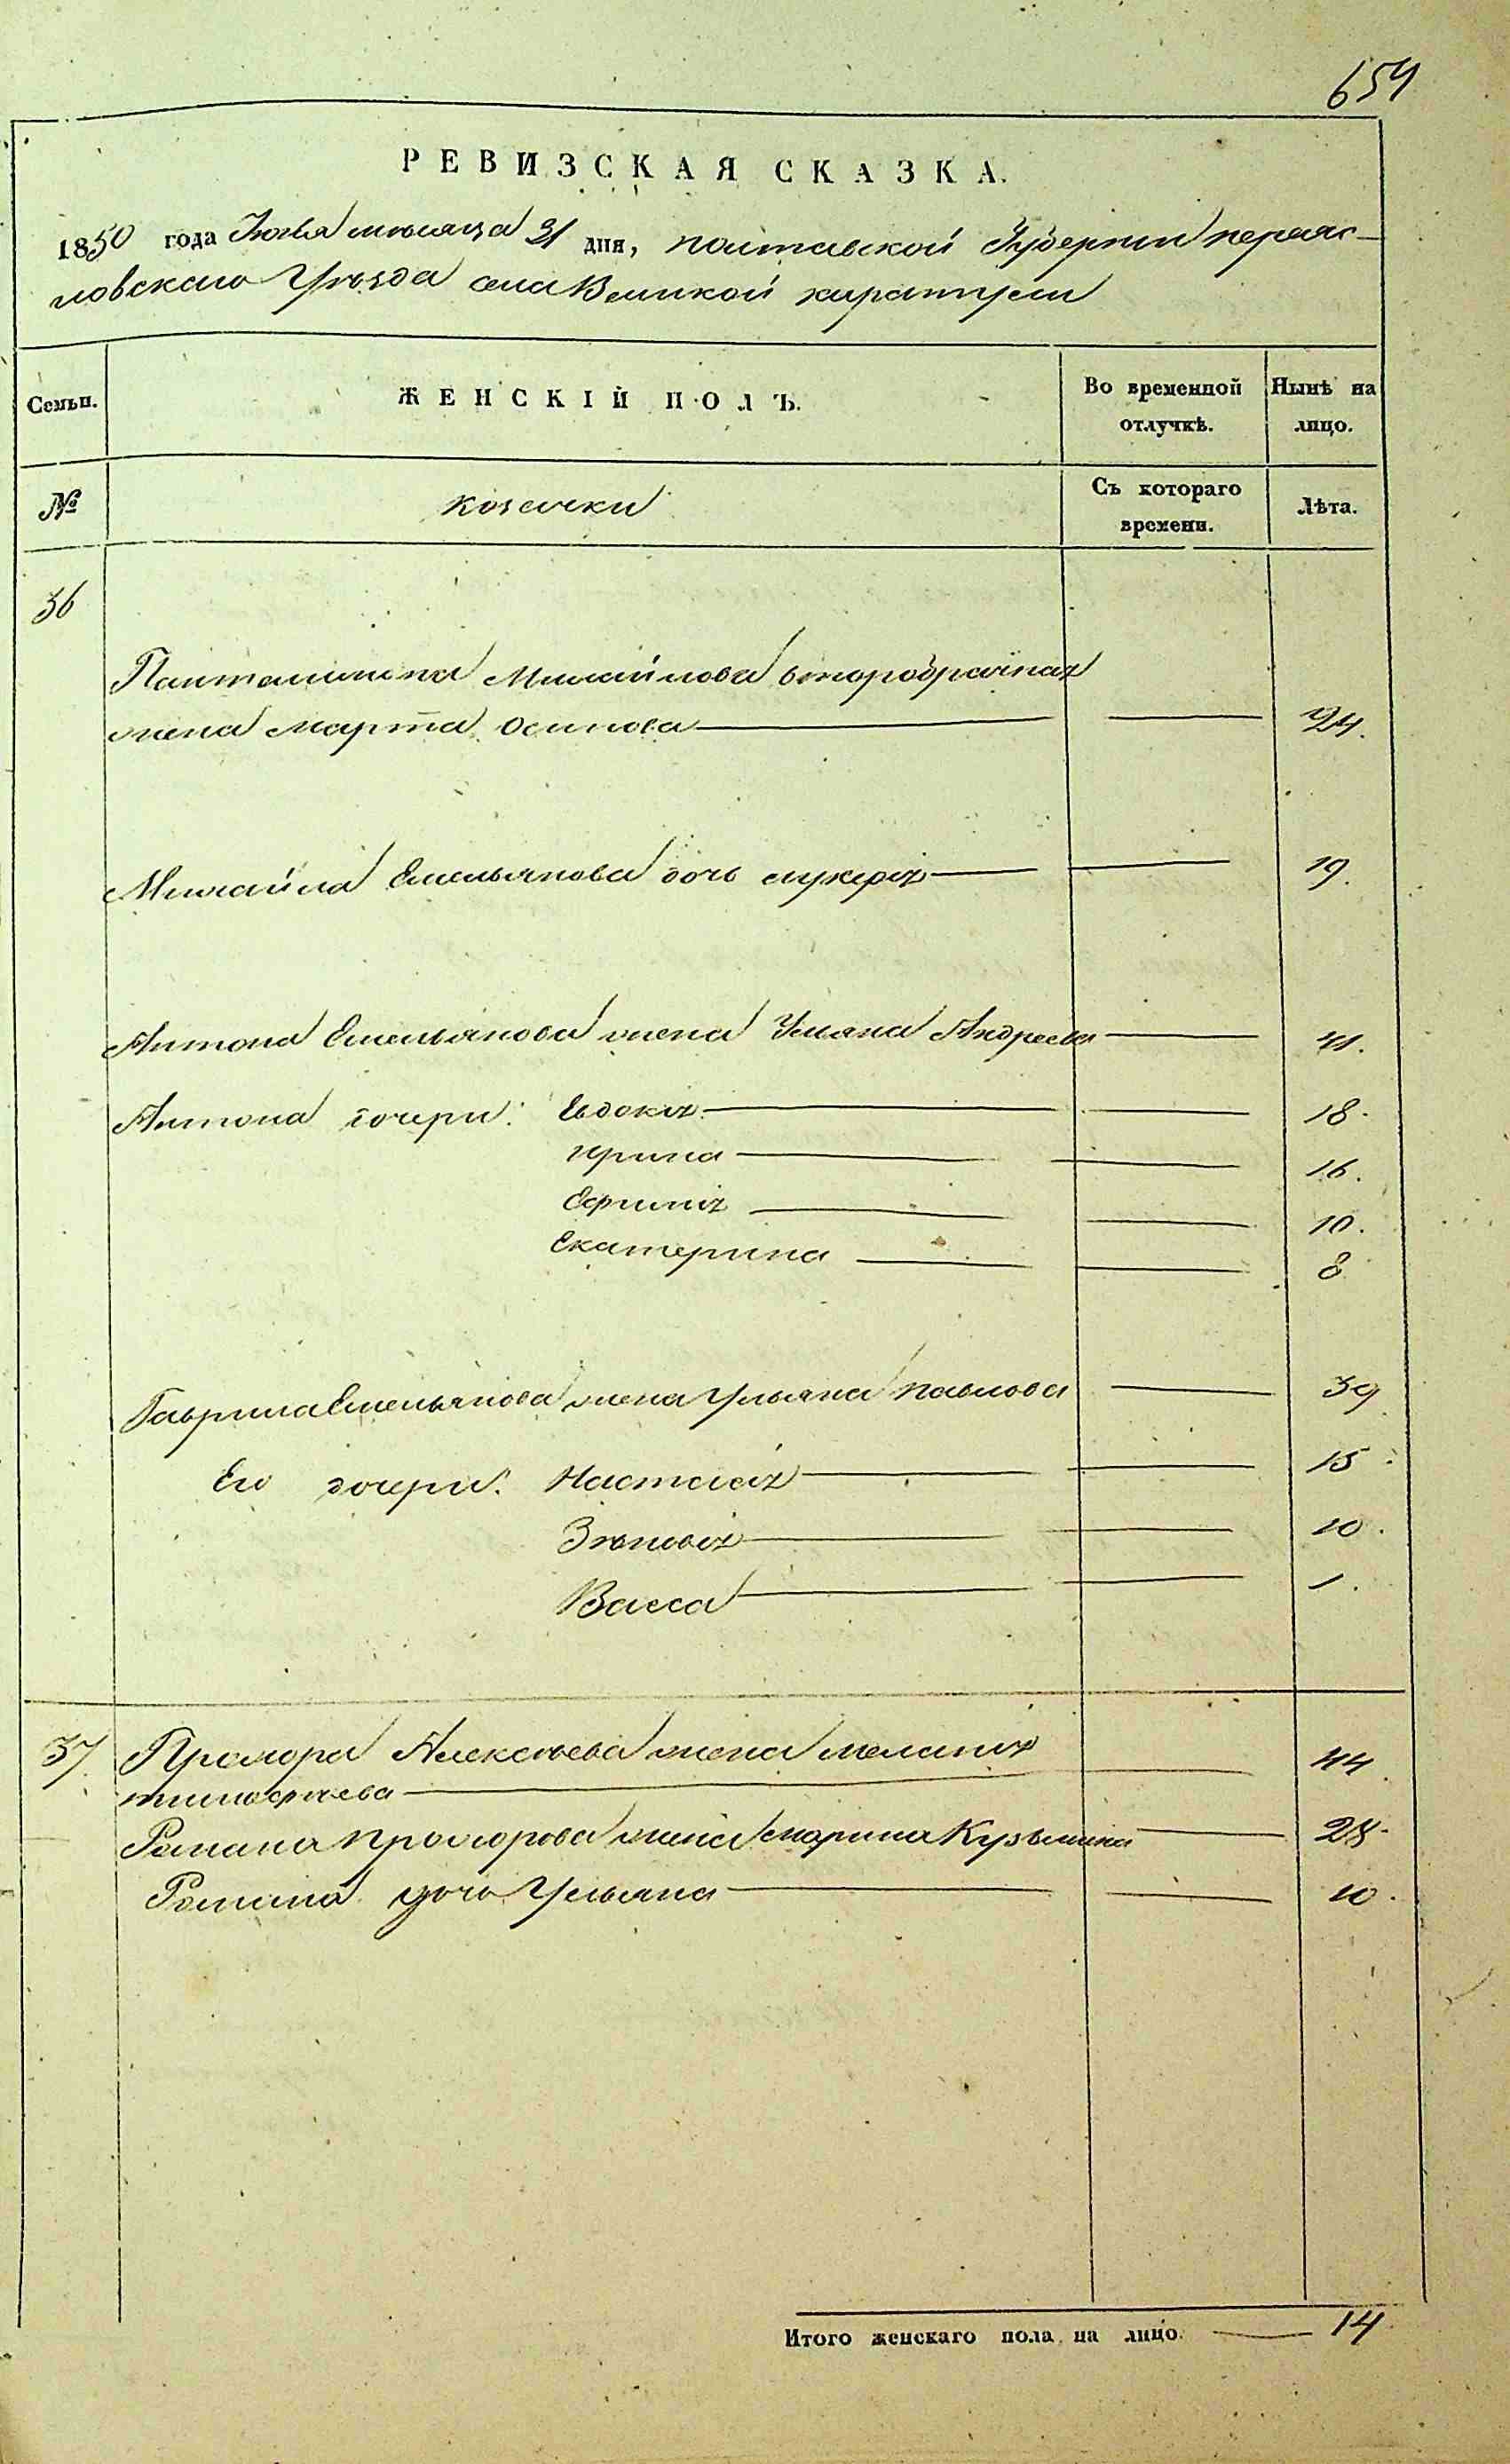 654
РЕВИЗСКАЯ СКАЗКА.
1850 года Июля месяца 31 дня, полтавской Губернии переяс-
ловскаго Уѣзда села Великой каратули
Семьи.
ЖЕНСКІЙ ПОЛЪ.
Во временной отлучкѣ.
Нынѣ на лицо.
№
козачки
Съ котораго времени.
Лѣта.
36
Пантелимона Михайлова второбрачная
жена Марта Осипова 24.
Михайла Емельянова дочь лукерія 19.
Антона Емельянова жена Уляна Андреева 41.
Антона дочери: Евдокія 18.
ирина 16.
Ефимія 10.
Екатерина 8
Гаврила Емельянова жена Ульяна павлова 39
Его дочери: Настасія 15
Зѣновія 10.
Васса 1.
37. Прохора Алексѣева жена меланія
тимофѣева 44
Романа прохорова жена марина Кузьмина 28.
Романа дочь Ульяна 10.
Итого женскаго пола на лицо. 14